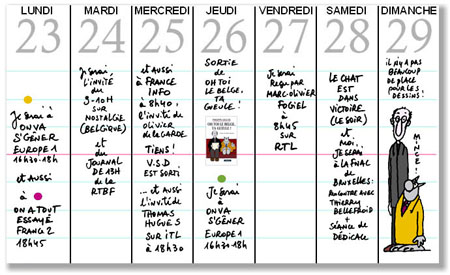 LUNDI
23
Je serai à
ON VA
S'GÊNER
EUROPE 1
16h30-18h
et aussi
à
ON A TOUT
ESSAYÉ
FRANCE 2
18h45
MARDI
24
Je serai
l'invité
du
9-10H
SUR
NOSTALGIE
(BELGIQUE)
et
du
JOURNAL
DE 13H
de la
RTBF
MERCREDI
25
et aussi
à FRANCE
INFO
à 8h40,
l'invité
de olivier
de lagarde
TIENS!
V.S.D
EST SORTI
... et aussi
l'invité de
THOMAS
HUGUES
SUR iTL
à 18h30
JEUDI
26
SORTIE
de
OH TOI
LE BELGE,
TA
GUEULE!
Je serai
à
ON VA
S'GÊNER
EUROPE 1
16h30/18h
VENDREDI
27
Je serai
Reçu par
MARC-OLIVIER
FOGIEL
à
8h45
SUR
RTL
SAMEDI
28
LE CHAT
EST
DANS
VICTOIRE.
(LE SOIR)
et
moi,
JE SERAI
à LA FNAC
de
BRUXELLES:
RENCONTRE AVEC
THIERRY
BELLEFROID
+
SÉANCE de
DÉDICACE
DIMANCHE
29
il n'y a PAS
BEAUCOUP
de PLACE
POUR LES
DESSINS!
MINCE!